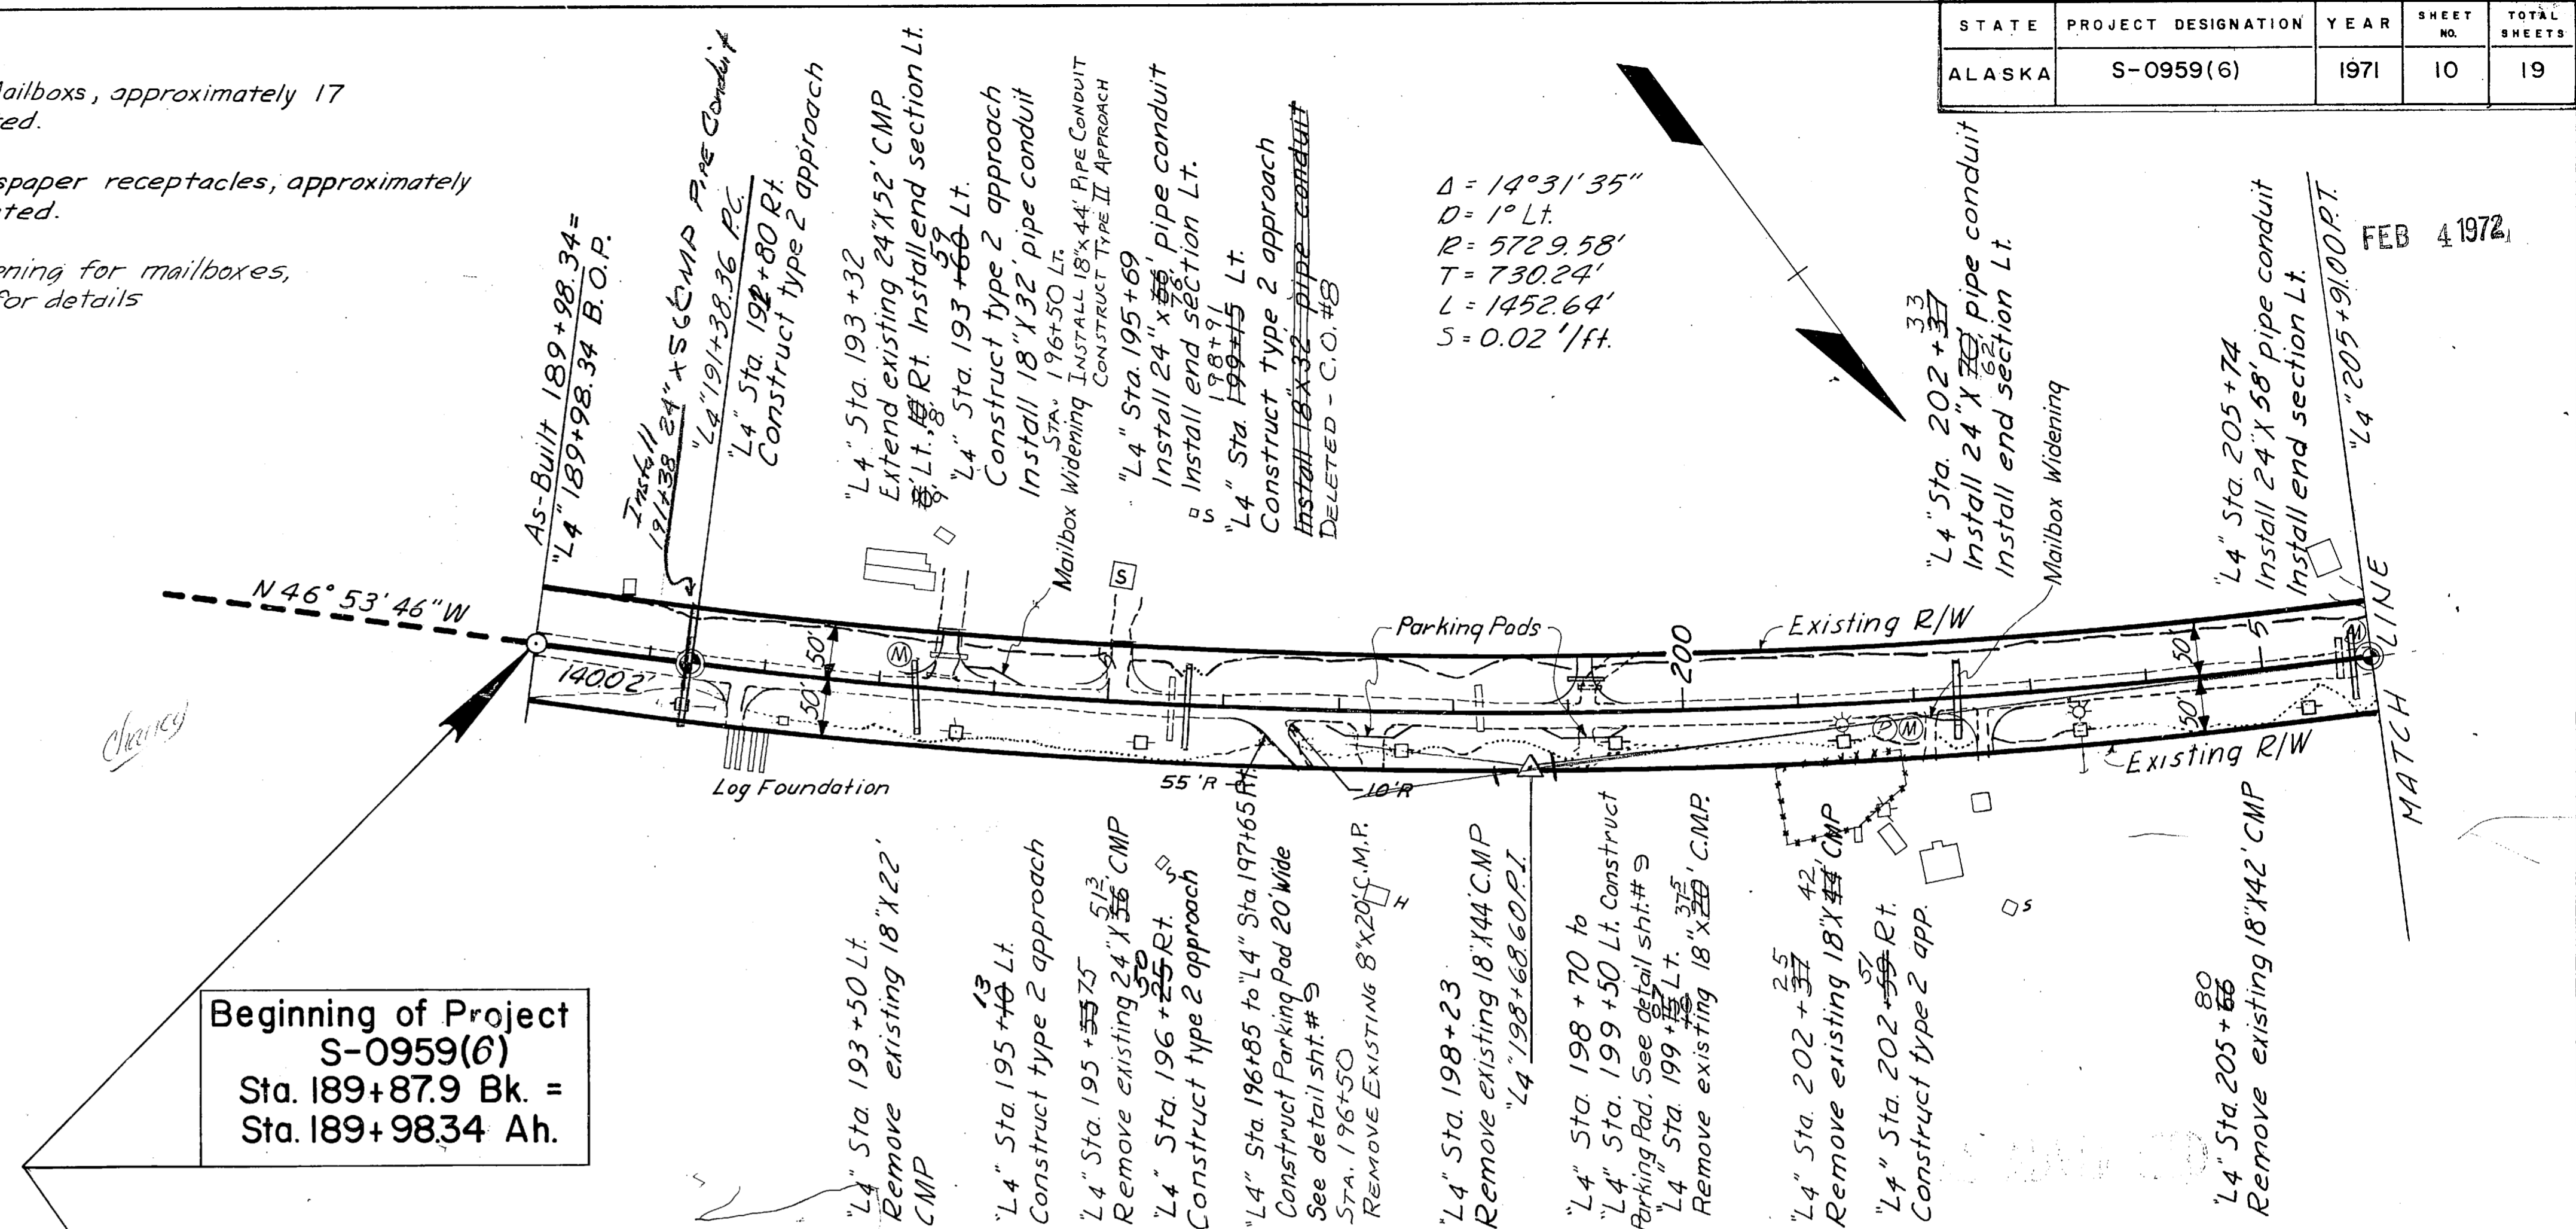 STATE PROJECT DESIGNATION YEAR SHEET NO. TOTAL SHEETS
ALASKA S-0959(6) 1971 10 19
ailboxs, approximately 17
ed.
spaper receptacles, approximately
ted.
ening for mailboxes,
for details
As-Built 189+98.34=
"L4" 189+98.34 B.O.P.
Install
191+38 24" x 56' CMP Pipe Conduit
"L4" 191+38.36 P.C.
"L4" Sta. 192+80 Rt.
Construct type 2 approach
"L4" Sta. 193+32
Extend existing 24"X52' CMP
8' Lt., 10' Rt. Install end section Lt.
9' 8'
59
"L4" Sta. 193+60 Lt.
Construct type 2 approach
Install 18"X32' pipe conduit
STA. 196+50 LT.
Mailbox Widening INSTALL 18"x44' PIPE CONDUIT
CONSTRUCT TYPE II APPROACH
"L4" Sta. 195+69
Install 24"x66' pipe conduit
76'
Install end section Lt.
198+91
"L4" Sta. 199+15 Lt.
Construct type 2 approach
Install 18"x32' pipe conduit
DELETED - C.O. #8
Δ = 14°31'35"
D = 1° Lt.
R = 5729.58'
T = 730.24'
L = 1452.64'
S = 0.02'/ft.
33
"L4" Sta. 202+37
Install 24"X70' pipe conduit
62'
Install end section Lt.
Mailbox Widening
"L4" Sta. 205+74
Install 24"X58' pipe conduit
Install end section Lt.
"L4" 205+91.00 P.T.
FEB 4 1972
N 46° 53' 46" W
14002'
50'
50'
M
S
S
Parking Pads
200
Existing R/W
50'
50'
5
M
P
M
MATCH LINE
Existing R/W
Log Foundation
55'R
10'R
Beginning of Project
S-0959(6)
Sta. 189+87.9 Bk. =
Sta. 189+98.34 Ah.
"L4" Sta 193+50 Lt.
Remove existing 18"X22'
CMP
13
"L4" Sta. 195+10 Lt.
Construct type 2 approach
"L4" Sta. 195+55 75
51.3
Remove existing 24"X56' CMP
50
"L4" Sta. 196+25 Rt.
Construct type 2 approach
S
"L4" Sta. 196+85 to "L4" Sta 197+65 Rt.
Construct Parking Pad 20' Wide
See detail sht. #9
STA. 196+50
REMOVE EXISTING 8"x20' C.M.P.
H
"L4" Sta 198+23
Remove existing 18"X44' C.M.P
"L4" 198+68.60 P.I.
"L4" Sta. 198+70 to
"L4" Sta. 199+50 Lt. Construct
Parking Pad. See detail sht. #9
"L4" Sta. 199+15 Lt.
37.5
Remove existing 18"x20' C.M.P.
25
"L4" Sta. 202+37
42'
Remove existing 18"X44' CMP
51
"L4" Sta. 202+59 Rt.
Construct type 2 app.
S
80
"L4" Sta. 205+66
Remove existing 18"X42' CMP